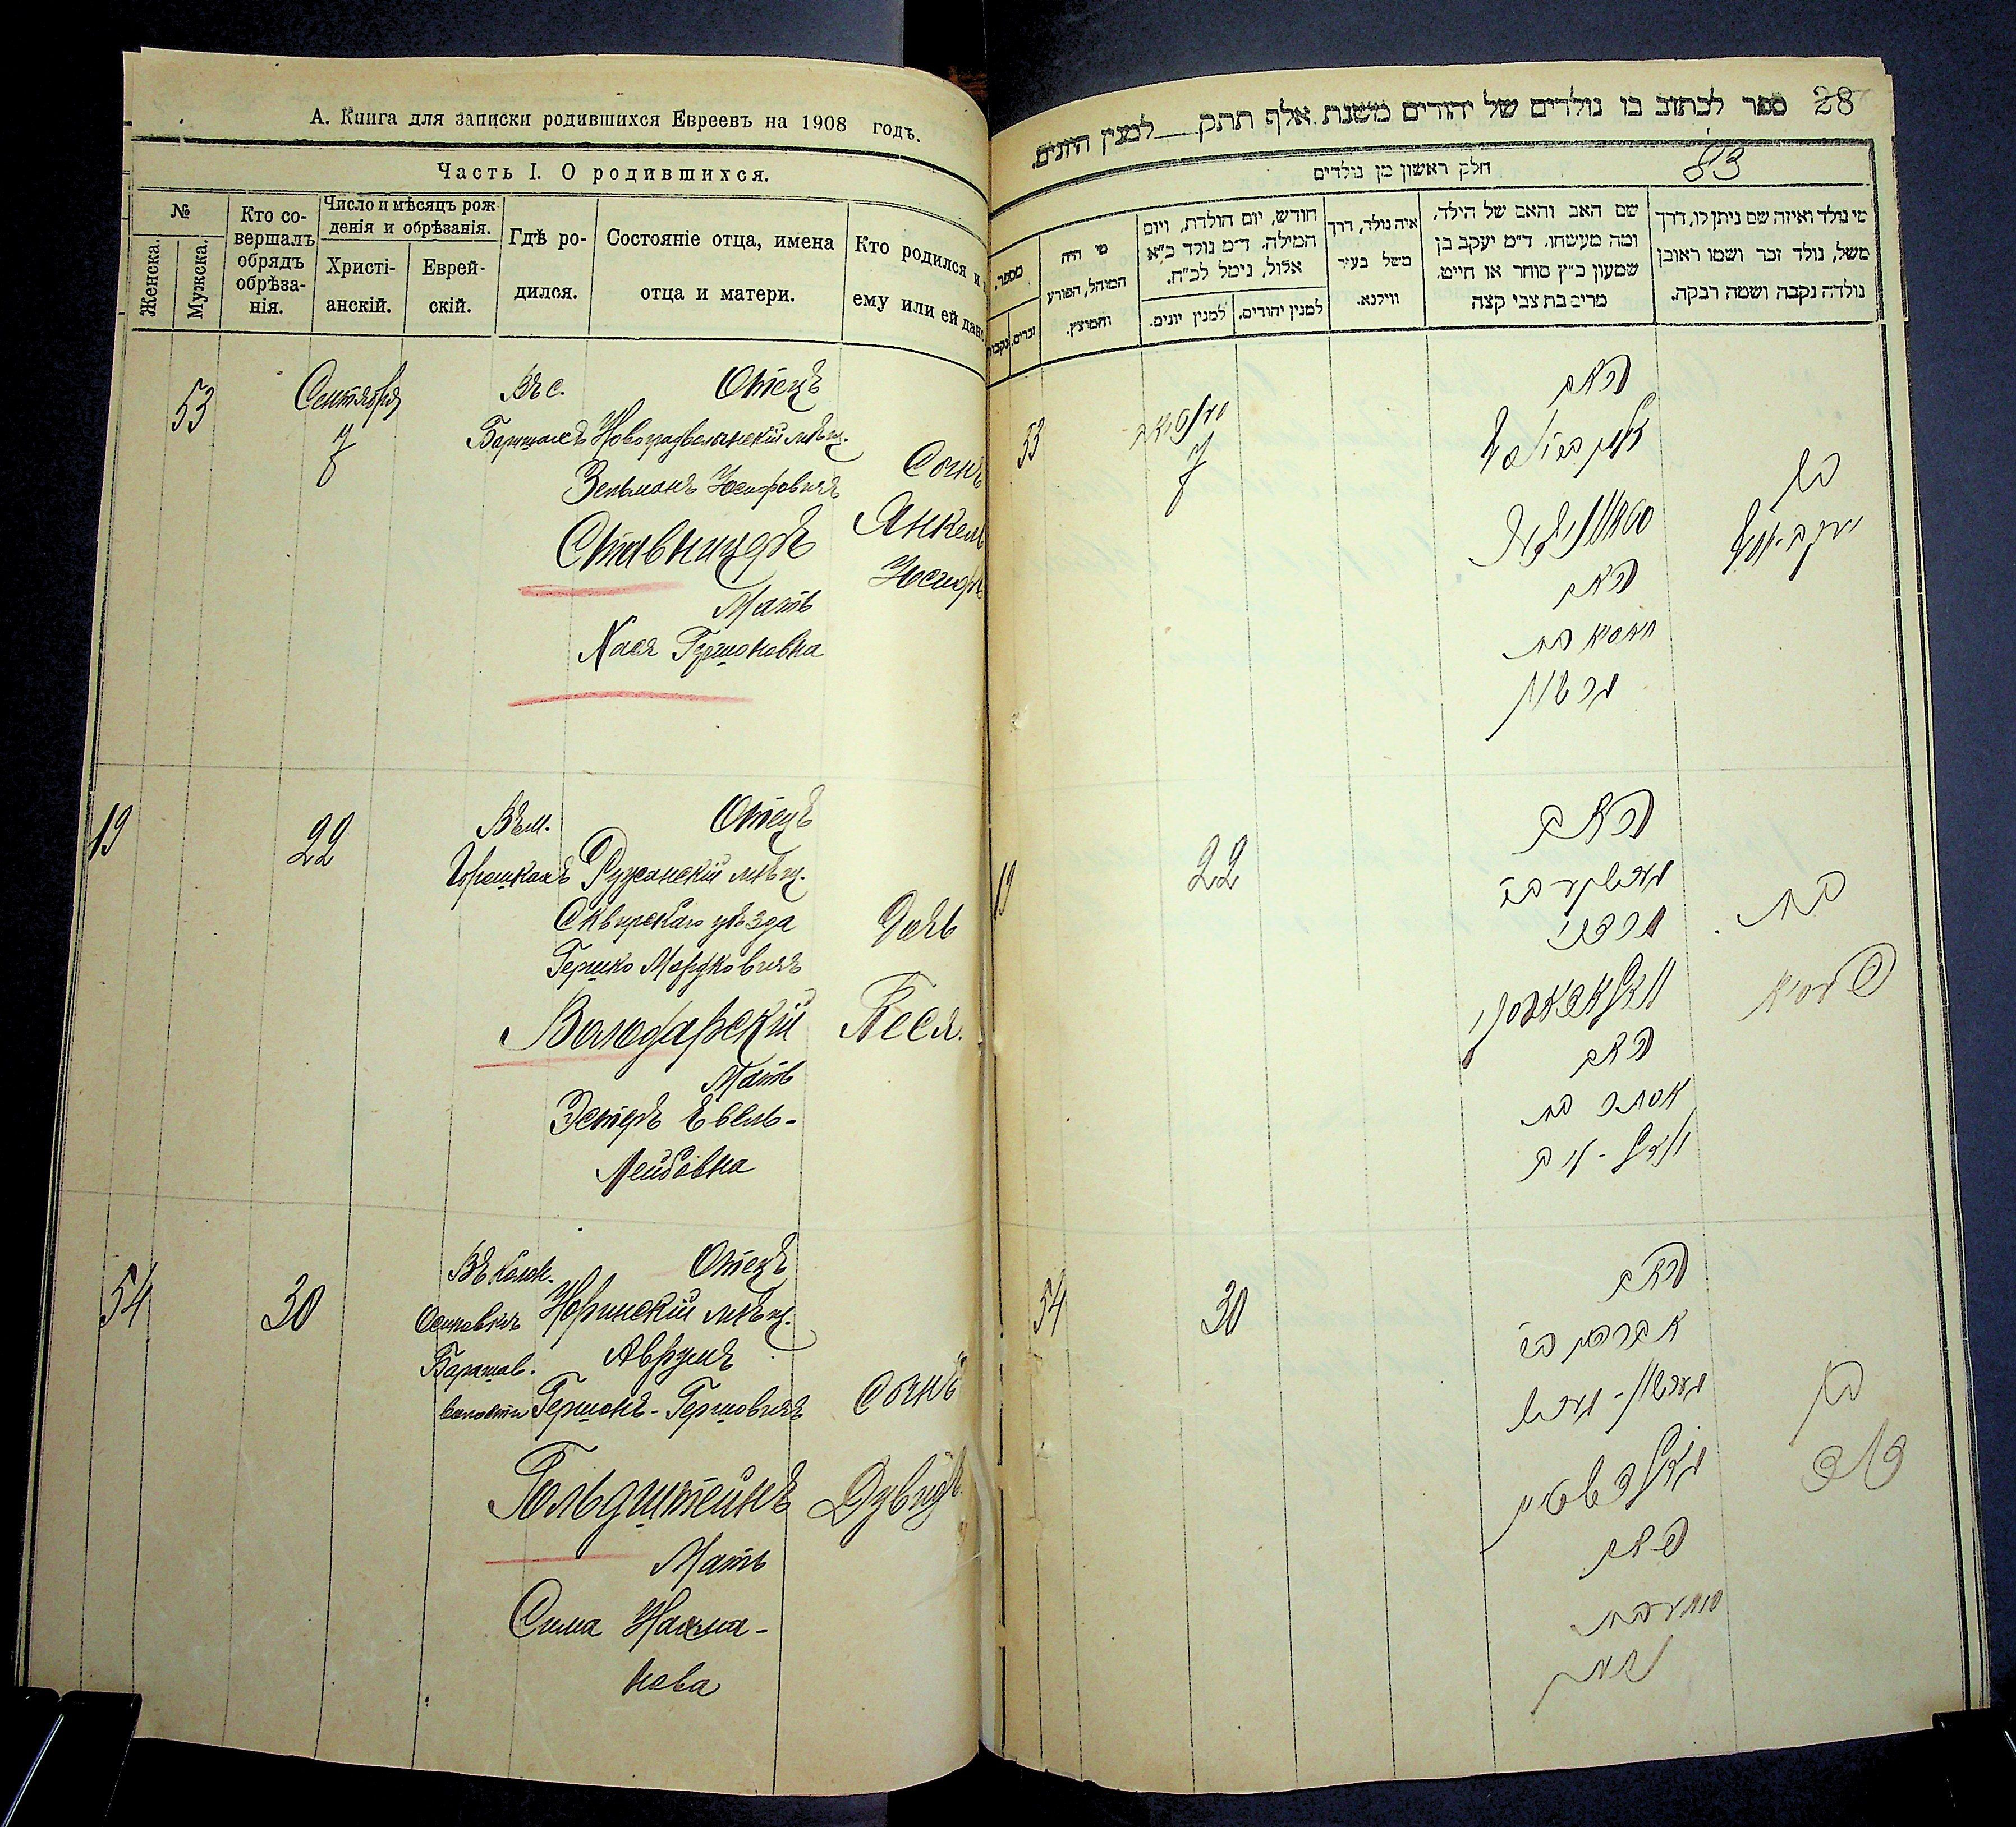 А. Книга для записки родившихся Евреевъ на 1908 годъ.
Часть I. О родившихся.
№
Женска.
Мужска.
Кто со-
вершалъ
обрядъ
обрѣза-
нія.
Число и мѣсяцъ рож-
денія и обрѣзанія.
Христі-
анскій.
Еврей-
скій.
Гдѣ ро-
дился.
Состояніе отца, имена
отца и матери.
Кто родился и
ему или ей дано
53
Сентября
7
Въ с.
Отецъ
Новоградволынскій мѣщ.
Зельманъ Іосифовичъ
Ставницеръ
Мать
Хася Гершоновна
Сынъ
Янкель
Іосифъ
19
22
Въ м.
Горошкахъ
Отецъ
Ружинскій мѣщ.
Сквирскаго уѣзда
Гершко Мордковичъ
Володарскій
Мать
Эстеръ Евель-
Лейбовна
Дочь
Песя.
54
30
Въ колон.
Осиповкѣ
Барашов.
волости
Отецъ
Норинскій мѣщ.
Аврумъ
Гершонъ-Гершовичъ
Гольдштейнъ
Мать
Сима Нахма-
нова
Сынъ
Дувидъ
28
ספר לכתוב בו נולדים של יהודים משנת אלף תתק למנין היונים.
חלק ראשון מן נולדים
מי נולד ואיזה שם ניתן לו, דרך
משל, נולד זכר ושמו ראובן
נולדה נקבה ושמה רבקה.
שם האב והאם של הילד,
ומה מעשהו. ד״מ יעקב בן
שמעון כ״ץ סוחר או חייט.
מרים בת צבי קצה
איה נולד, דרך
משל בעיר
ווילנא.
חודש, יום הולדת, ויום
המילה. ד״מ נולד כ״א
אלול, נימל לכ״ח.
למנין יהודים.
למנין יונים.
מי היה
המוהל, הפורע
והמוצץ.
מספר.
זכרים.
נקבות
53
7
האב
האם
חאסיא בת
גרשון
בן
יעקב יוסף
19
22
האב
מרדכי
וואלאדארסקי
האם
אסתר בת
בת
פעסיא
54
30
האב
אברהם
גאלדשטיין
האם
סימע בת
נחמן
בן
דוד